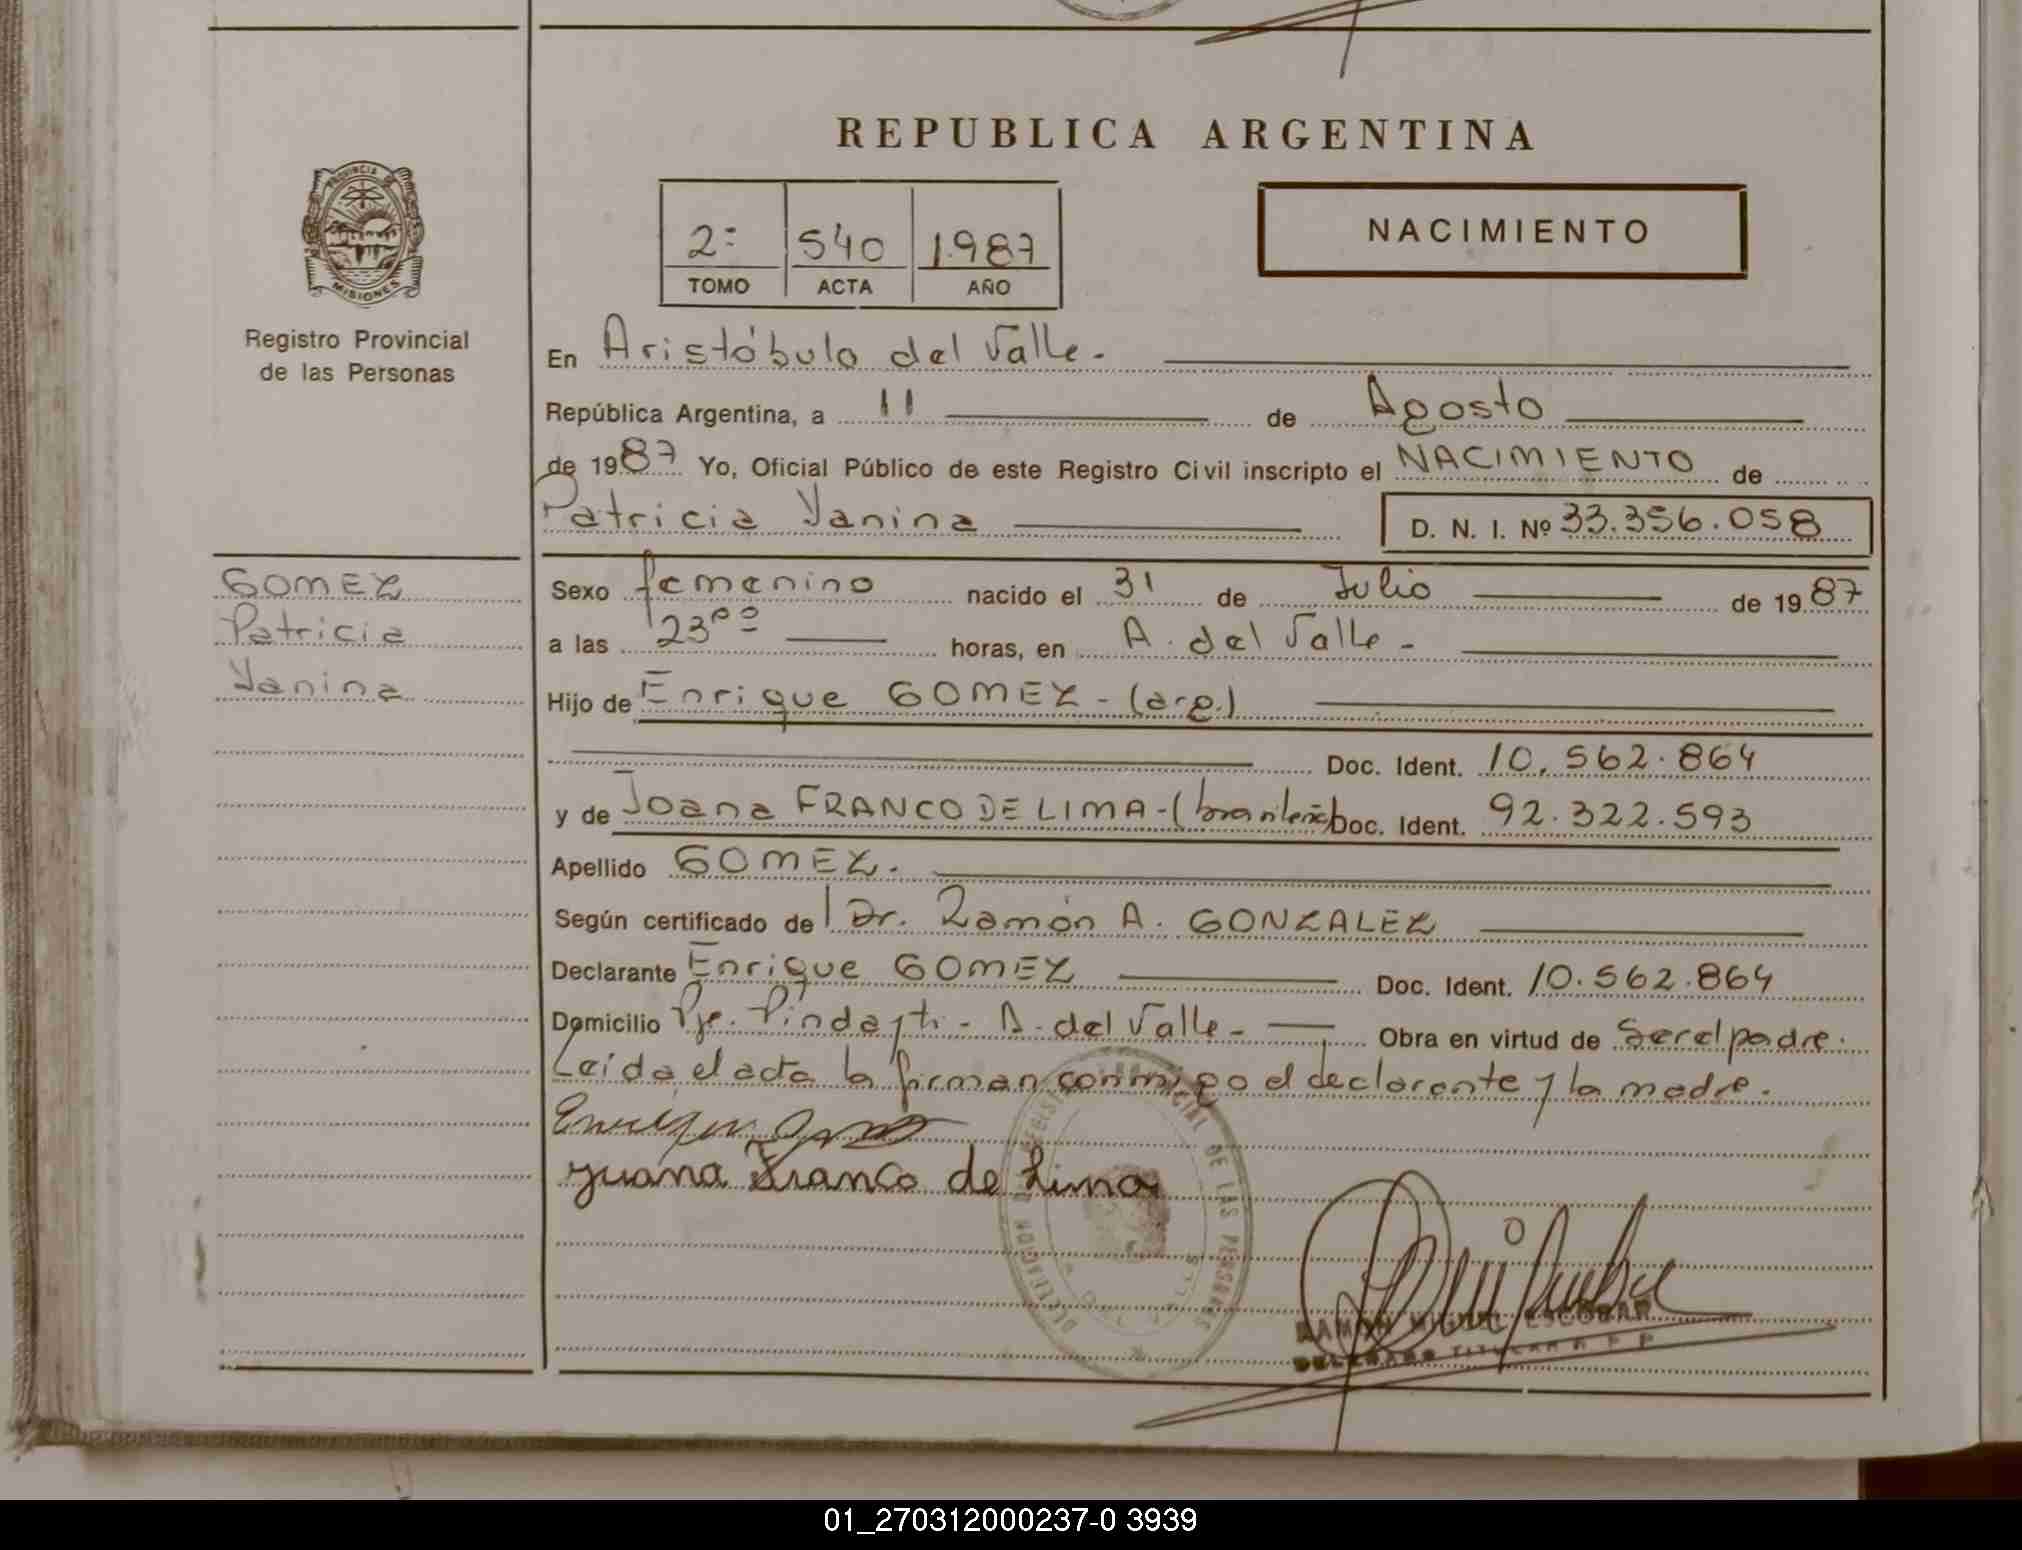 REPUBLICA ARGENTINA
PROVINCIA DE
MISIONES
Registro Provincial
de las Personas
2º 540 1.987
TOMO ACTA AÑO
NACIMIENTO
En Aristóbulo del Valle.-
República Argentina, a 11 de Agosto
de 1987 Yo, Oficial Público de este Registro Civil inscripto el NACIMIENTO de
Patricia Yanina D. N. I. Nº 33.356.058
GOMEZ
Patricia
Yanina
Sexo femenino nacido el 31 de Julio de 1987
a las 23ºº horas, en A. del Valle -
Hijo de Enrique GOMEZ - (arg.)
Doc. Ident. 10.562.864
y de Joana FRANCO DE LIMA - (brasileña) Doc. Ident. 92.322.593
Apellido GOMEZ.
Según certificado de Dr. Ramón A. GONZALEZ
Declarante Enrique GOMEZ Doc. Ident. 10.562.864
Domicilio Pje. Pindayti - A. del Valle - Obra en virtud de ser el padre.
Leída el acta la firman conmigo el declarante y la madre.
Juana Franco de Lima
DELEGACION REGISTRO PROVINCIAL DE LAS PERSONAS
RAMON MIGUEL ESCOBAR
DELEGADO TITULAR R P P
01_270312000237-0 3939